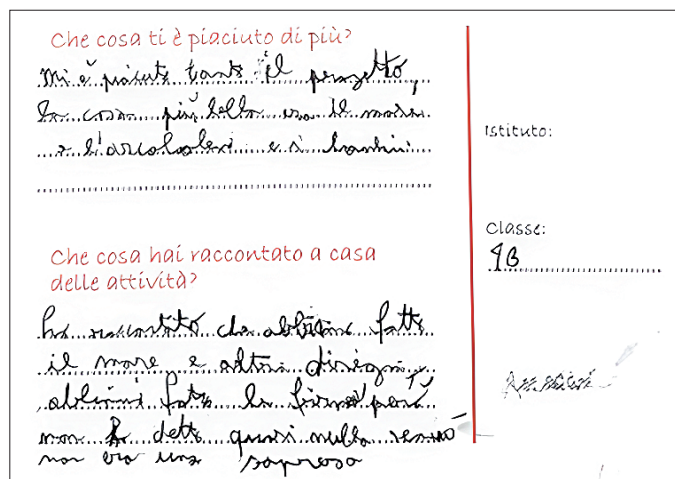 Che cosa ti è piaciuto di più?
Mi è piaciuto tanto il progetto,
la cosa più bella era il mare
e l'arcobaleno e i bambini
Istituto:
Classe:
4B
Che cosa hai raccontato a casa
delle attività?
ho raccontato che abbiamo fatto
il mare e altri disegni
abbiamo fatto la firma però
non ho detto quasi nulla se no
non era una sopresa